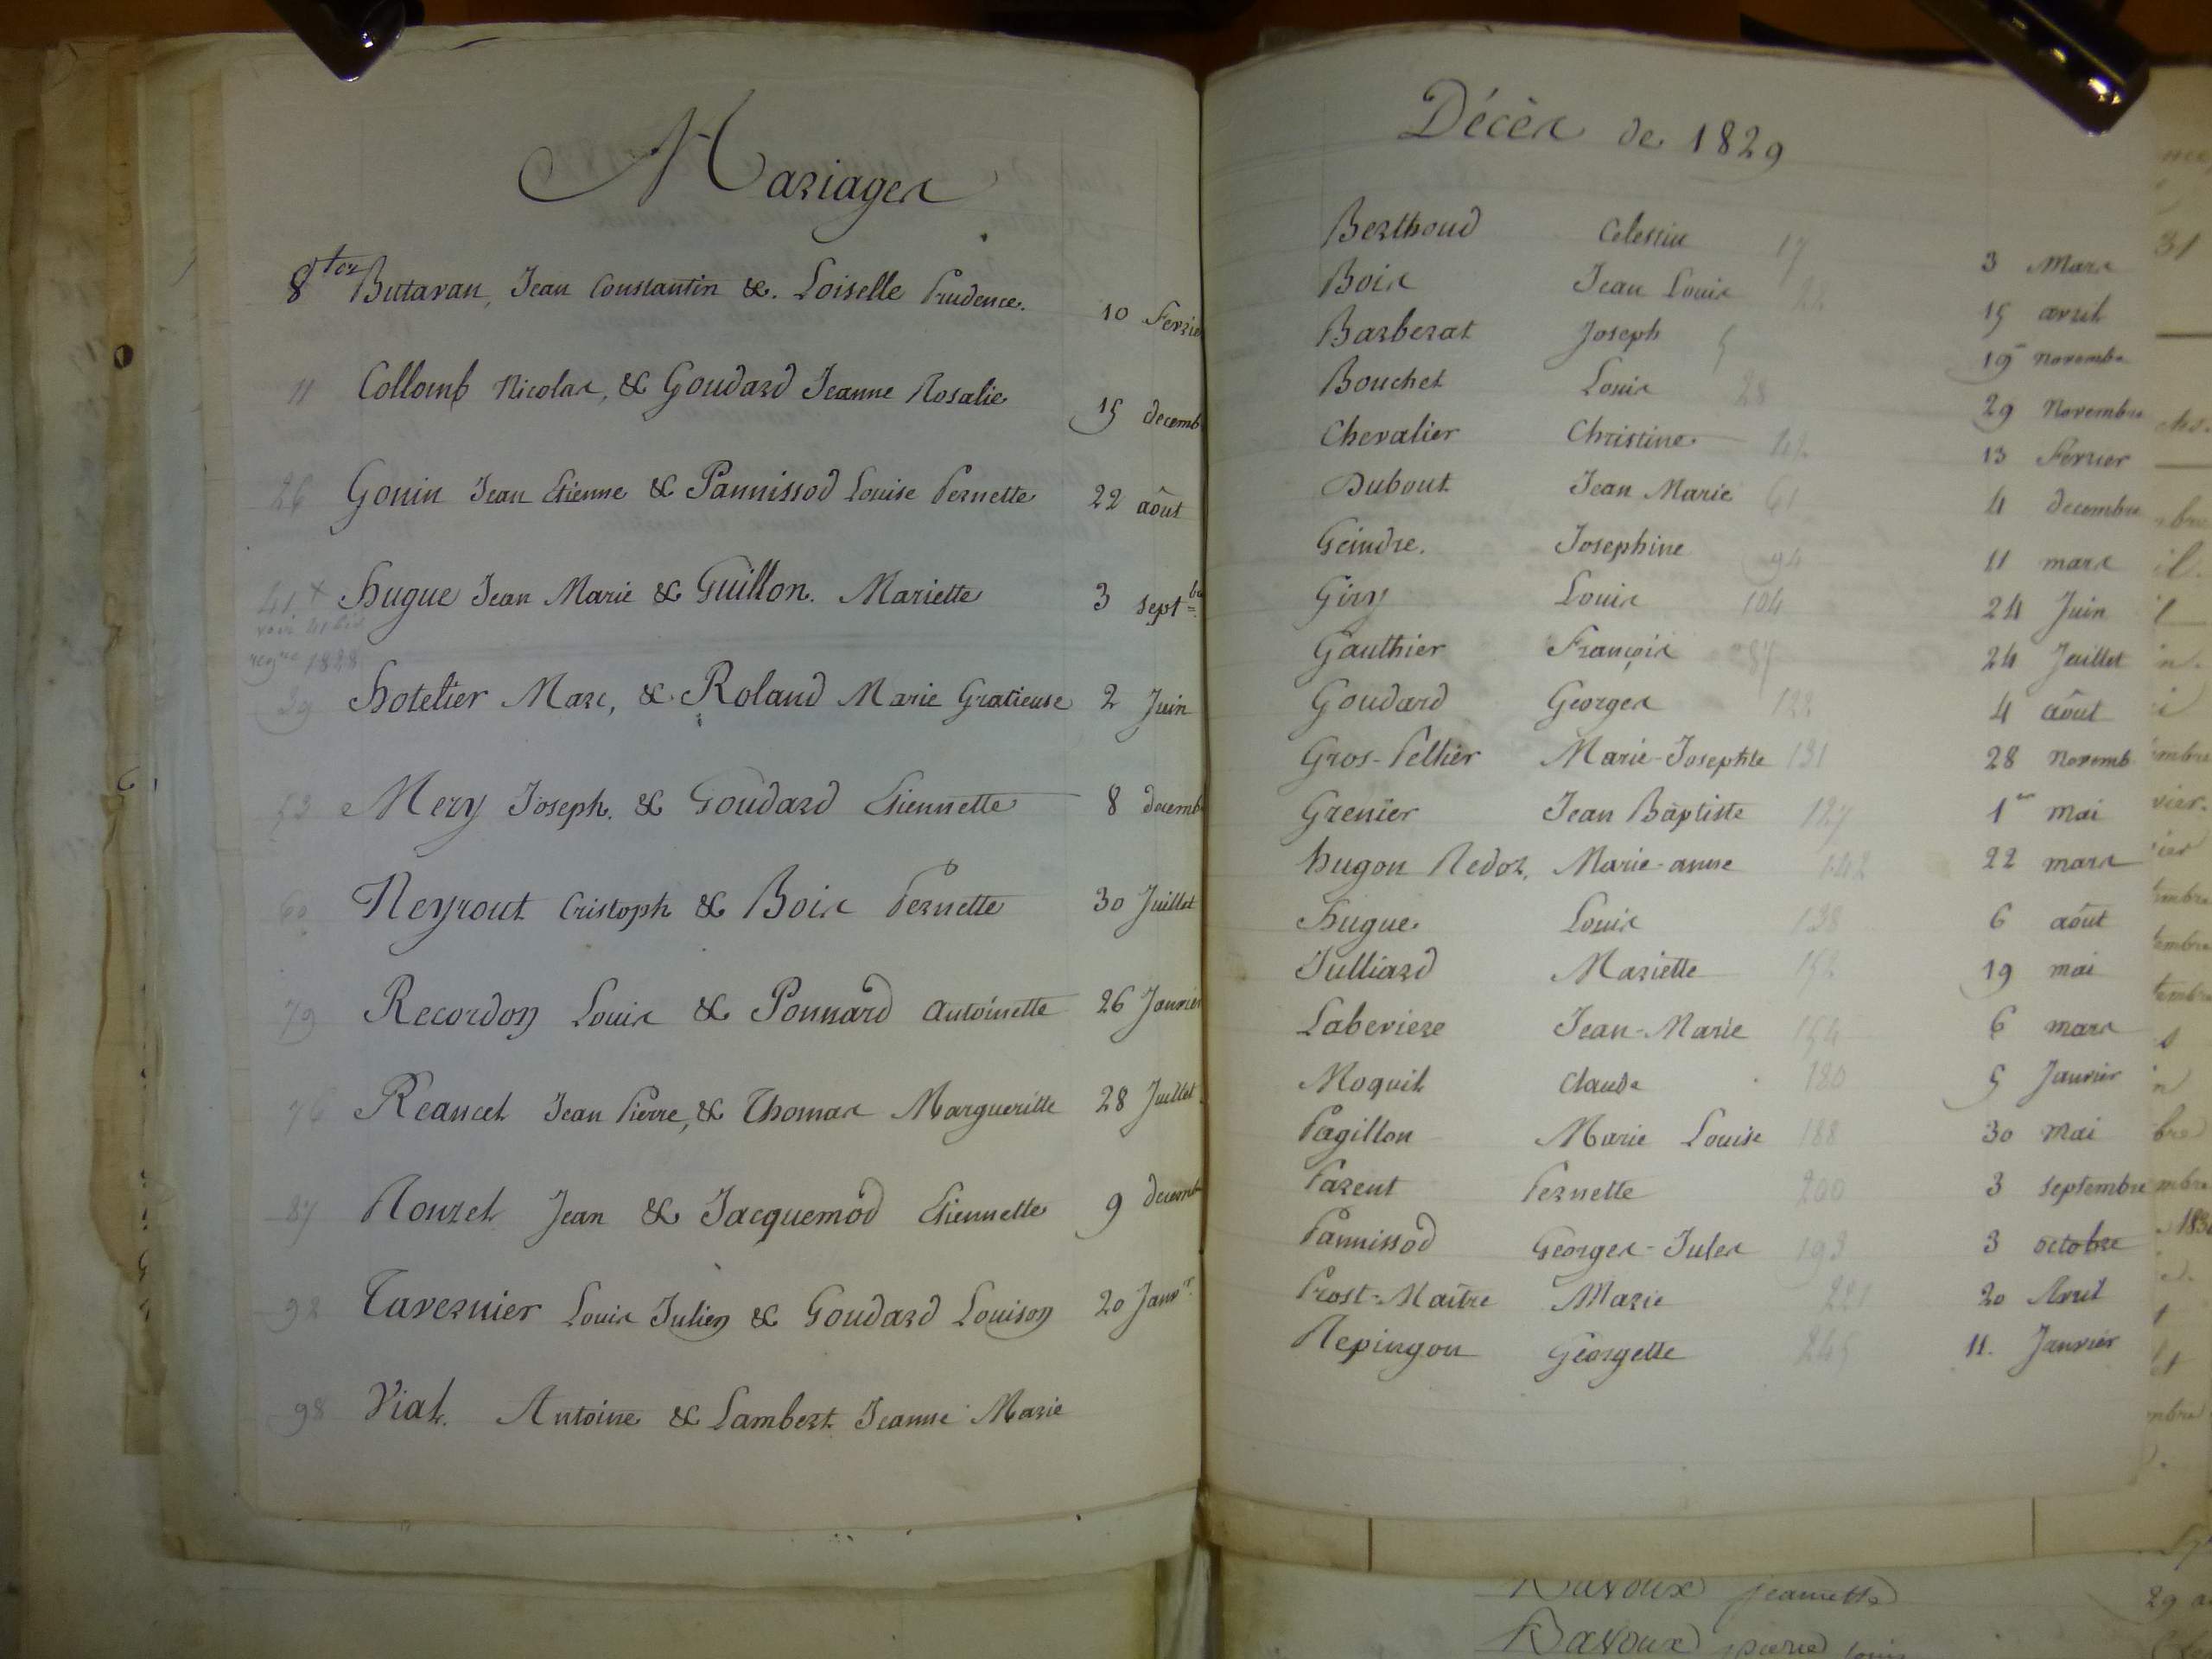 Mariages
8 ter Butavan, Jean Constantin &. Loiselle Prudence. 10 Fevrie
11 Collomb Nicolas, & Goudard Jeanne Rosalie 15 decemb
26 Gonin Jean Etienne & Pannissod Louise Pernette 22 aôut
41 + Hugue Jean Marie & Guillon. Mariette 3 septbre
voir 41 bis
regre 1828
39 Hotelier Marc, & Roland Marie Gratieuse 2 Juin
53 Mery Joseph. & Goudard Etiennette 8 decemb
60 Neyrout Cristoph & Bois Pernette 30 Juillet
79 Recordon Louis & Ponnard Antoinette 26 Janvier
76 Reancet Jean Pierre, & Thomas Margueritte 28 Juillet
87 Rouzet Jean & Jacquemod Etiennette 9 decemb
92 Tavernier Louis Julien & Goudard Louison 20 Janvr.
98 Viat. Antoine & Lambert Jeanne Marie
Décès de 1829
Berthoud Celestin 17 3 Mars
Bois Jean Louis 24 15 avril
Barberat Joseph 5 19 novembe
Bouchet Louis 28 29 Novembre
Chevalier Christine 42 13 Fevrier
Dubout Jean Marie 61 4 decembre
Geindre. Josephine 94 11 mars
Giry Louis 104 24 Juin
Gauthier François 87 24 Juillet
Goudard Georges 122 4 aôut
Gros-Pellier Marie-Josephte 131 28 novemb
Grenier Jean Baptiste 127 1er mai
hugon Redor, Marie-anne 142 22 mars
Hugue. Louis 138 6 aôut
Julliard Mariette 152 19 mai
Laberiere Jean-Marie 154 6 mars
Moquit Claude 180 5 Janvier
Pagillon Marie Louise 188 30 Mai
Parent Pernette 200 3 septembre
Pannissod Georges-Jules 193 3 octobre
Prost-Maitre Marie 221 20 Avril
Repingon Georgette 245 11. Janvier
Bavoux jeannette
Bavoux pierre louis